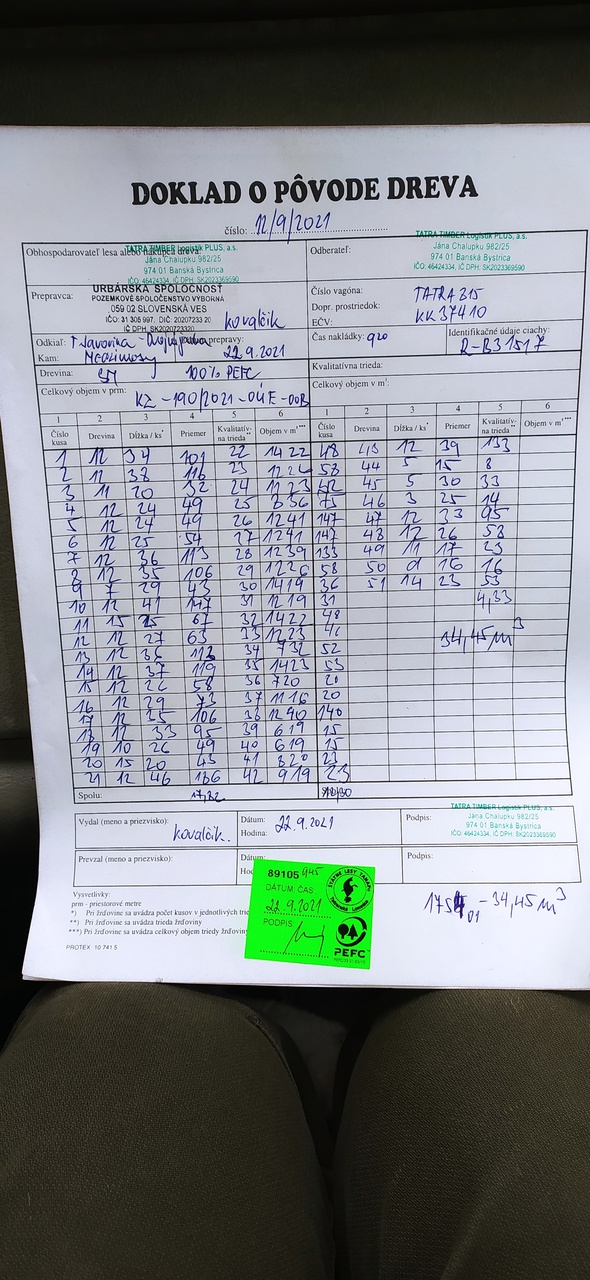 DOKLAD O PÔVODE DREVA
číslo: 12/9/2021
Obhospodarovateľ lesa alebo nákupca dreva:
TATRA TIMBER Logistik PLUS, a.s.
Jána Chalupku 982/25
974 01 Banská Bystrica
IČO: 46424334, IČ DPH: SK2023369590
Odberateľ:
TATRA TIMBER Logistik PLUS, a.s.
Jána Chalupku 982/25
974 01 Banská Bystrica
IČO: 46424334, IČ DPH: SK2023369590
Prepravca:
URBÁRSKA SPOLOČNOSŤ
POZEMKOVÉ SPOLOČENSTVO VÝBORNÁ
059 02 SLOVENSKÁ VES
IČO: 31 306 997, DIČ: 20207233 20
IČ DPH: SK2020723320
Kovalčik
Číslo vagóna:
Dopr. prostriedok: TATRA 815
EČV: KK 374 10
Odkiaľ: T Javorina
prepravy:
Kam: 22.9.2021
Čas nakládky: 920
Identifikačné údaje ciachy:
R-B3151 7
Drevina: SM 100% PEFC
Kvalitatívna trieda:
Celkový objem v prm: KZ-190/2021-OÚE-OOB
Celkový objem v m³:
1 2 3 4 5 6 1 2 3 4 5 6
Číslo kusa Drevina Dĺžka / ks* Priemer Kvalitatív- na trieda** Objem v m³*** Číslo kusa Drevina Dĺžka / ks* Priemer Kvalitatív- na trieda** Objem v m³***
1 12 34 101 22 14 22 48 43 12 39 133
2 12 38 116 23 12 24 58 44 5 15 8
3 11 20 32 24 11 23 42 45 5 30 33
4 12 24 49 25 8 36 75 46 3 25 14
5 12 24 49 26 12 41 147 47 12 33 95
6 12 25 54 27 12 41 147 48 12 26 58
7 12 36 113 28 12 39 133 49 11 17 23
8 12 35 106 29 12 26 58 50 16 16
9 7 29 43 30 14 19 36 51 14 23 53
10 12 41 147 31 12 19 31 4,33
11 15 25 67 32 14 22 48
12 12 27 63 33 12 23 34,45m³
13 12 36 113 34 7 32 52
14 12 37 119 35 14 23 53
15 12 26 58 36 7 20 20
16 12 29 73 37 11 16 20
17 12 35 106 38 12 40 140
18 12 33 95 39 6 19 15
19 10 26 49 40 6 19 15
20 15 20 43 41 8 20 23
21 12 46 186 42 9 19 23
Spolu:
Vydal (meno a priezvisko): Kovalčik.
Dátum: 22.9.2021
Hodina:
Podpis:
TATRA TIMBER Logistik PLUS, a.s.
Jána Chalupku 982/25
974 01 Banská Bystrica
IČO: 46424334, IČ DPH: SK2023369590
Prevzal (meno a priezvisko):
Podpis:
89105 945
DÁTUM: ČAS
22.9.2021
PODPIS:
ŠTÁTNE LESY TANAPu
PEFC
Vysvetlivky:
prm - priestorové metre
*) Pri žrďovine sa uvádza počet kusov v jednotlivých
**) Pri žrďovine sa uvádza trieda žrďoviny
***) Pri žrďovine sa uvádza celkový objem triedy žrďoviny
PROTEX 10 741 5
01 - 34,45 m³